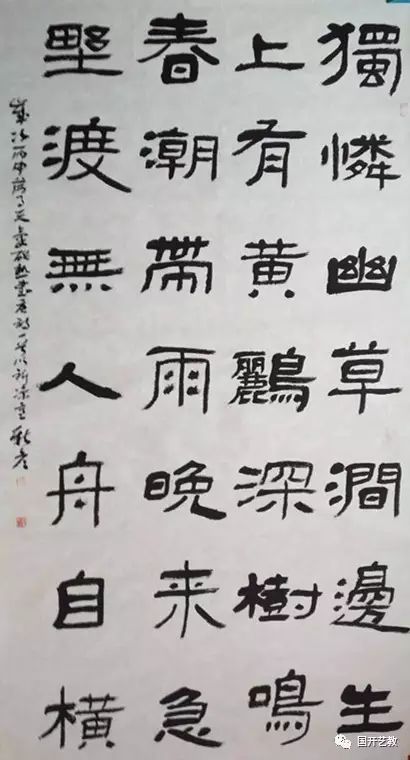 獨憐幽草澗邊生
上有黄鸝深樹鳴
春潮帶雨晚来急
野渡無人舟自横
歲次丙申
国开艺教